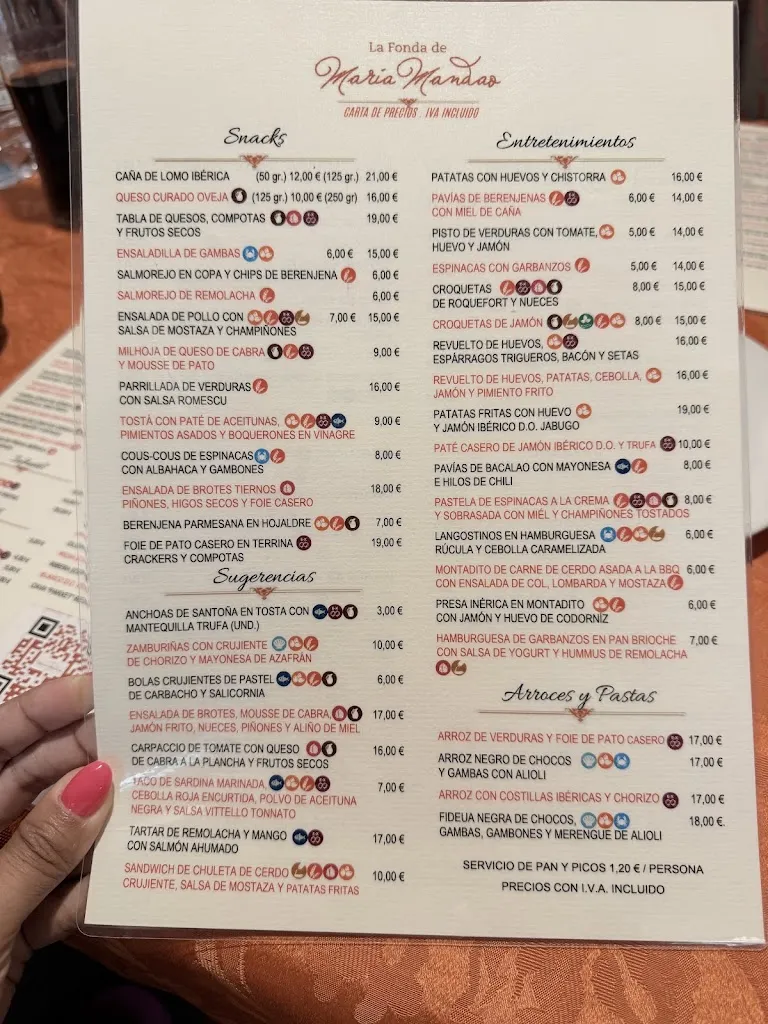 La Fonda de
Maria Mandao
CARTA DE PRECIOS . IVA INCLUIDO
Snacks
CAÑA DE LOMO IBÉRICA (50 gr.) 12,00 € (125 gr.) 21,00 €
QUESO CURADO OVEJA (125 gr.) 10,00 € (250 gr) 16,00 €
TABLA DE QUESOS, COMPOTAS 19,00 €
Y FRUTOS SECOS
ENSALADILLA DE GAMBAS 6,00 € 15,00 €
SALMOREJO EN COPA Y CHIPS DE BERENJENA 6,00 €
SALMOREJO DE REMOLACHA 6,00 €
ENSALADA DE POLLO CON 7,00 € 15,00 €
SALSA DE MOSTAZA Y CHAMPIÑONES
MILHOJA DE QUESO DE CABRA 9,00 €
Y MOUSSE DE PATO
PARRILLADA DE VERDURAS 16,00 €
CON SALSA ROMESCU
TOSTÁ CON PATÉ DE ACEITUNAS, 9,00 €
PIMIENTOS ASADOS Y BOQUERONES EN VINAGRE
COUS-COUS DE ESPINACAS 8,00 €
CON ALBAHACA Y GAMBONES
ENSALADA DE BROTES TIERNOS 18,00 €
PIÑONES, HIGOS SECOS Y FOIE CASERO
BERENJENA PARMESANA EN HOJALDRE 7,00 €
FOIE DE PATO CASERO EN TERRINA 19,00 €
CRACKERS Y COMPOTAS
Sugerencias
ANCHOAS DE SANTOÑA EN TOSTA CON 3,00 €
MANTEQUILLA TRUFA (UND.)
ZAMBURIÑAS CON CRUJIENTE 10,00 €
DE CHORIZO Y MAYONESA DE AZAFRÁN
BOLAS CRUJIENTES DE PASTEL 6,00 €
DE CARBACHO Y SALICORNIA
ENSALADA DE BROTES, MOUSSE DE CABRA, 17,00 €
JAMÓN FRITO, NUECES, PIÑONES Y ALIÑO DE MIEL
CARPACCIO DE TOMATE CON QUESO 16,00 €
DE CABRA A LA PLANCHA Y FRUTOS SECOS
TACO DE SARDINA MARINADA, 7,00 €
CEBOLLA ROJA ENCURTIDA, POLVO DE ACEITUNA
NEGRA Y SALSA VITTELLO TONNATO
TARTAR DE REMOLACHA Y MANGO 17,00 €
CON SALMÓN AHUMADO
SANDWICH DE CHULETA DE CERDO 10,00 €
CRUJIENTE, SALSA DE MOSTAZA Y PATATAS FRITAS
Entretenimientos
PATATAS CON HUEVOS Y CHISTORRA 16,00 €
PAVÍAS DE BERENJENAS 6,00 € 14,00 €
CON MIEL DE CAÑA
PISTO DE VERDURAS CON TOMATE, 5,00 € 14,00 €
HUEVO Y JAMÓN
ESPINACAS CON GARBANZOS 5,00 € 14,00 €
CROQUETAS 8,00 € 15,00 €
DE ROQUEFORT Y NUECES
CROQUETAS DE JAMÓN 8,00 € 15,00 €
REVUELTO DE HUEVOS, 16,00 €
ESPÁRRAGOS TRIGUEROS, BACÓN Y SETAS
REVUELTO DE HUEVOS, PATATAS, CEBOLLA, 16,00 €
JAMÓN Y PIMIENTO FRITO
PATATAS FRITAS CON HUEVO 19,00 €
Y JAMÓN IBÉRICO D.O. JABUGO
PATÉ CASERO DE JAMÓN IBÉRICO D.O. Y TRUFA 10,00 €
PAVÍAS DE BACALAO CON MAYONESA 8,00 €
E HILOS DE CHILI
PASTELA DE ESPINACAS A LA CREMA 8,00 €
Y SOBRASADA CON MIEL Y CHAMPIÑONES TOSTADOS
LANGOSTINOS EN HAMBURGUESA 6,00 €
RÚCULA Y CEBOLLA CARAMELIZADA
MONTADITO DE CARNE DE CERDO ASADA A LA BBQ 6,00 €
CON ENSALADA DE COL, LOMBARDA Y MOSTAZA
PRESA INÉRICA EN MONTADITO 6,00 €
CON JAMÓN Y HUEVO DE CODORNÍZ
HAMBURGUESA DE GARBANZOS EN PAN BRIOCHE 7,00 €
CON SALSA DE YOGURT Y HUMMUS DE REMOLACHA
Arroces y Pastas
ARROZ DE VERDURAS Y FOIE DE PATO CASERO 17,00 €
ARROZ NEGRO DE CHOCOS 17,00 €
Y GAMBAS CON ALIOLI
ARROZ CON COSTILLAS IBÉRICAS Y CHORIZO 17,00 €
FIDEUA NEGRA DE CHOCOS, 18,00 €.
GAMBAS, GAMBONES Y MERENGUE DE ALIOLI
SERVICIO DE PAN Y PICOS 1,20 € / PERSONA
PRECIOS CON I.V.A. INCLUIDO